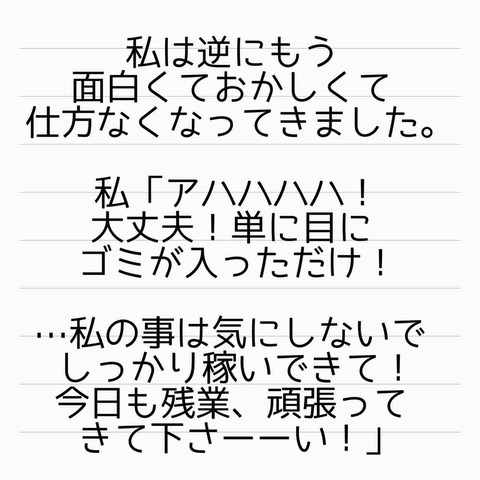 私は逆にもう
面白くておかしくて
仕方なくなってきました。
私「アハハハハ！
大丈夫！単に目に
ゴミが入っただけ！
…私の事は気にしないで
しっかり稼いできて！
今日も残業、頑張って
きて下さーーい！」